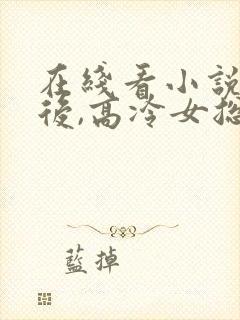 在綫看小説
後,高冷女總
藍掉